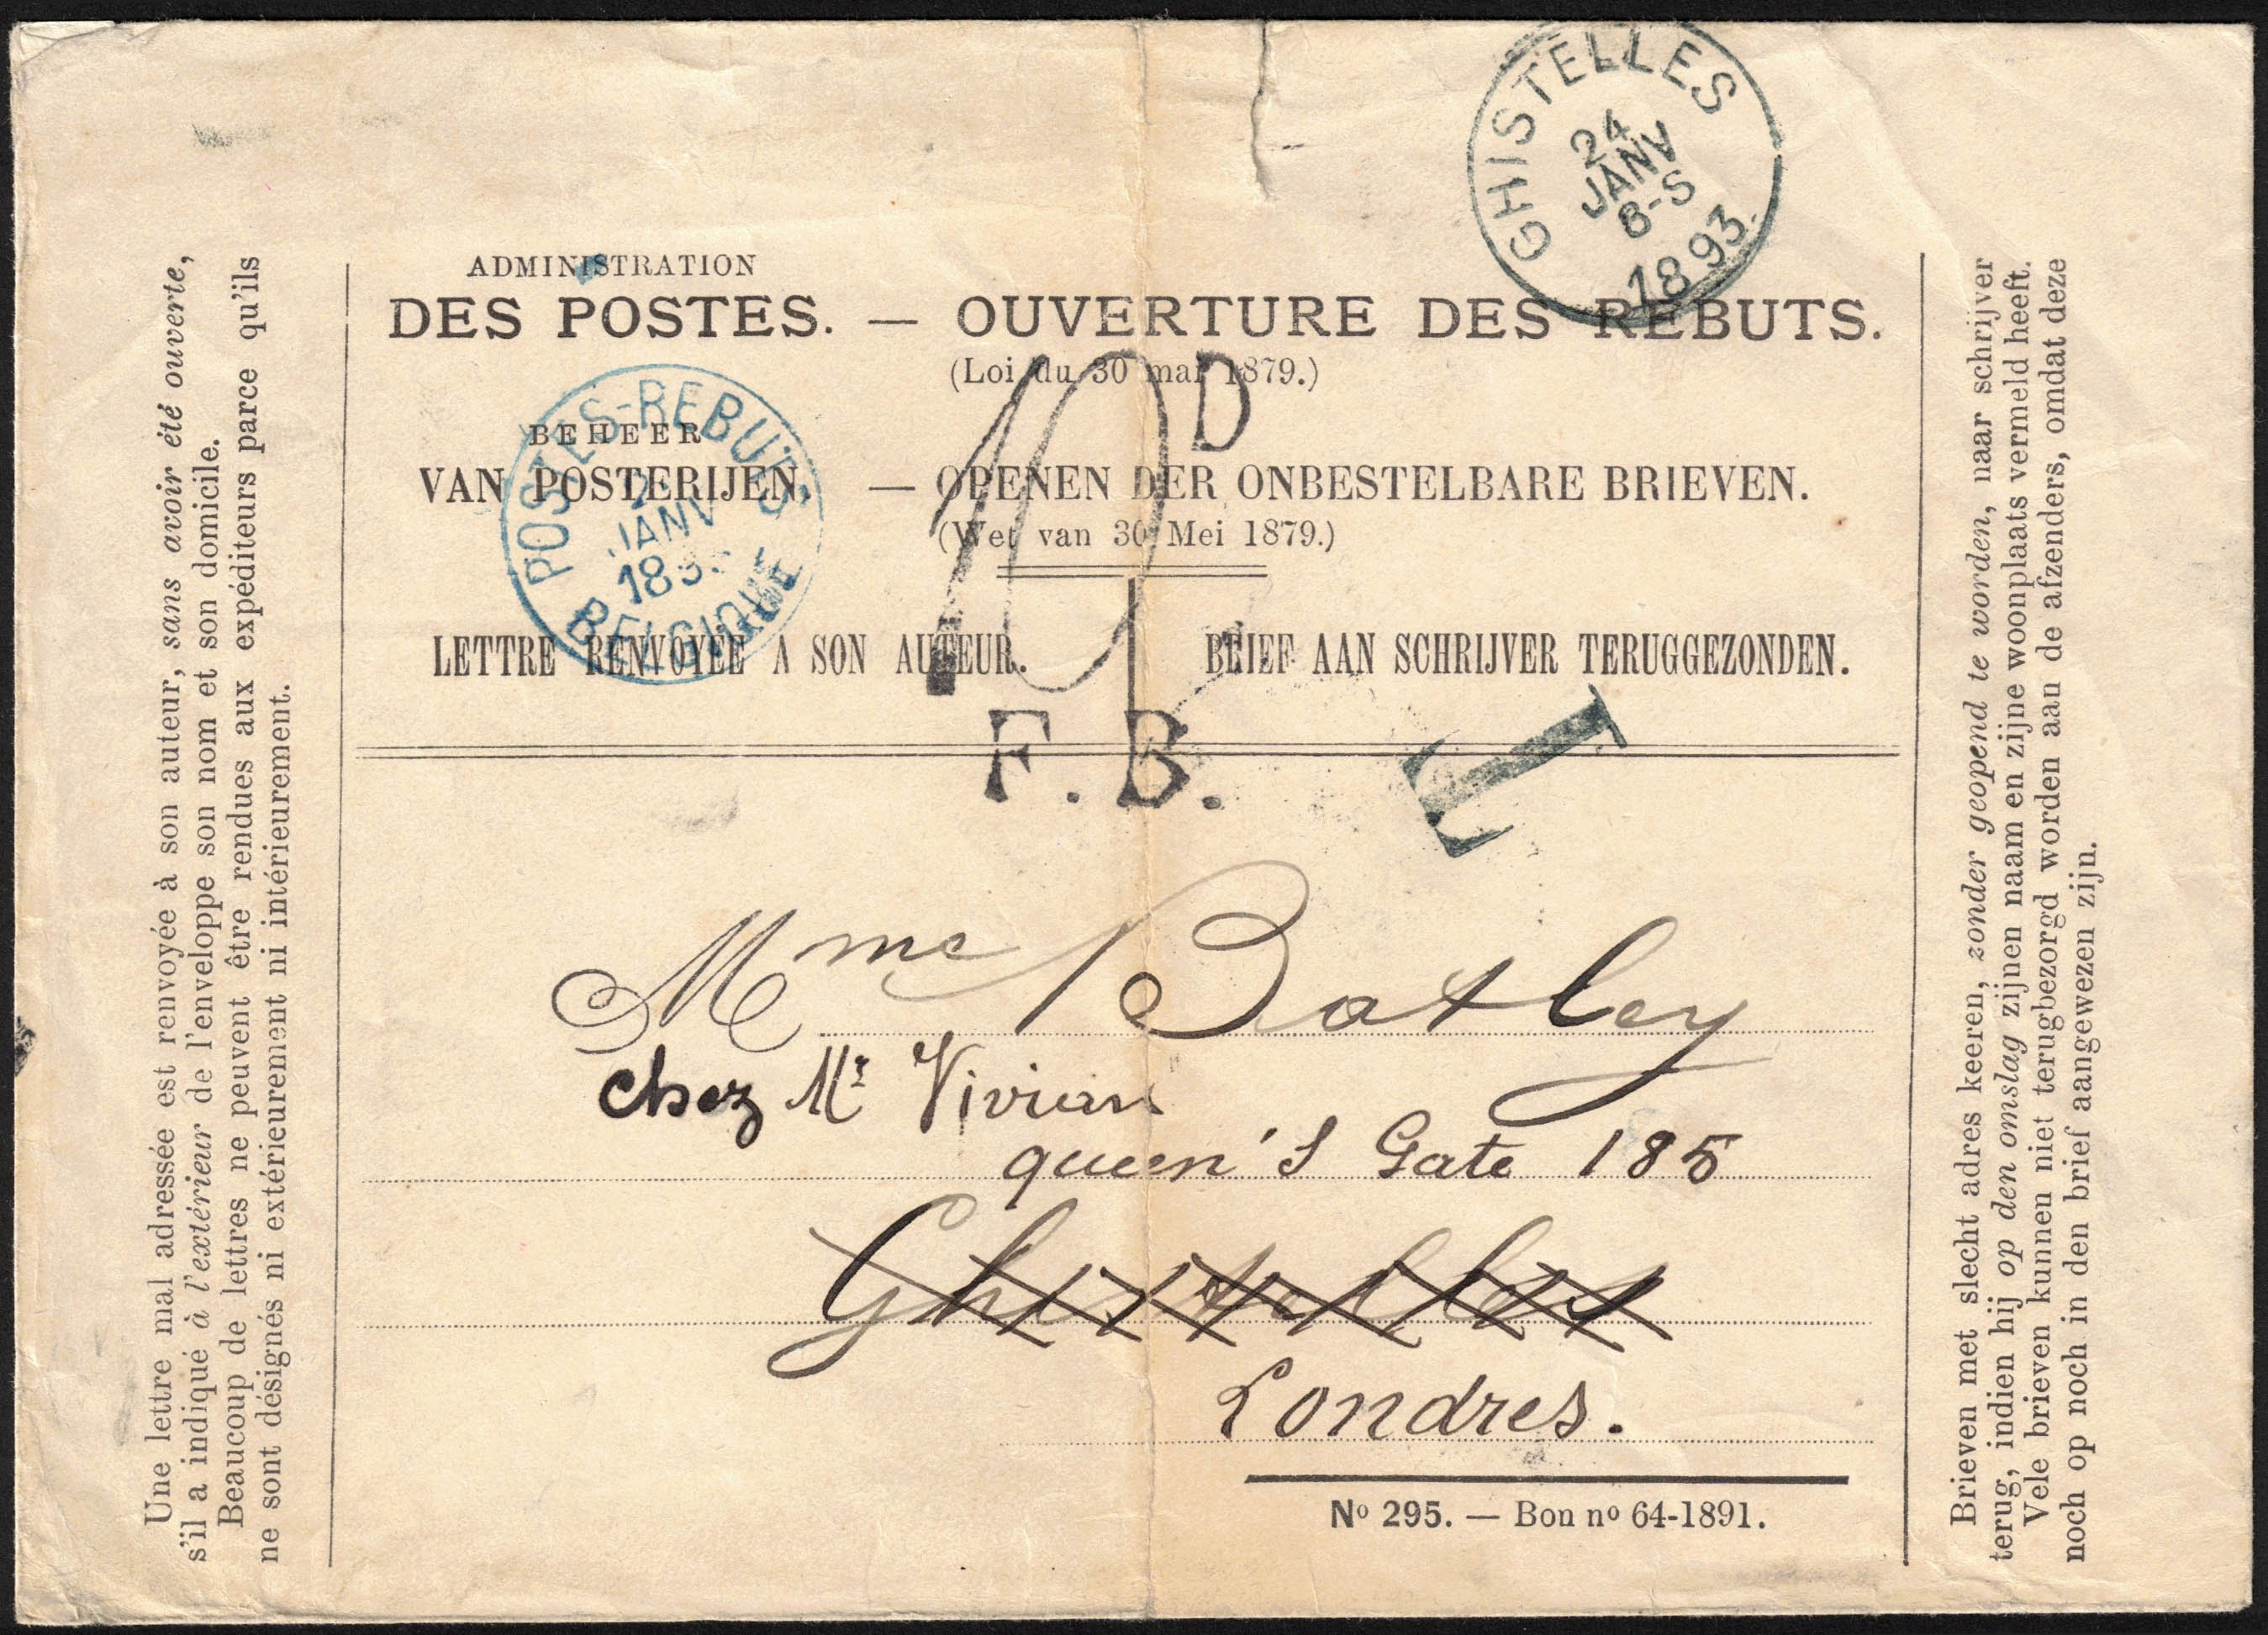 GHISTELLES
24
JANV
8-S
1893
ADMINISTRATION
DES POSTES. — OUVERTURE DES REBUTS.
(Loi du 30 mai 1879.)
BEHEER
VAN POSTERIJEN. — OPENEN DER ONBESTELBARE BRIEVEN.
(Wet van 30 Mei 1879.)
POSTES-REBUTS
JANV
BELGIQUE
10D
LETTRE RENVOYÉE A SON AUTEUR.
BRIEF AAN SCHRIJVER TERUGGEZONDEN.
F. B.
T
Mme Batley
chez Mr Vivian
queen's Gate 185
Ghistelles
Londres.
No 295. — Bon no 64-1891.
Une lettre mal adressée est renvoyée à son auteur, sans avoir été ouverte,
s'il a indiqué à l'extérieur de l'enveloppe son nom et son domicile.
Beaucoup de lettres ne peuvent être rendues aux expéditeurs parce qu'ils
ne sont désignés ni extérieurement ni intérieurement.
Brieven met slecht adres keeren, zonder geopend te worden, naar schrijver
terug, indien hij op den omslag zijnen naam en zijne woonplaats vermeld heeft.
Vele brieven kunnen niet terugbezorgd worden aan de afzenders, omdat deze
noch op noch in den brief aangewezen zijn.